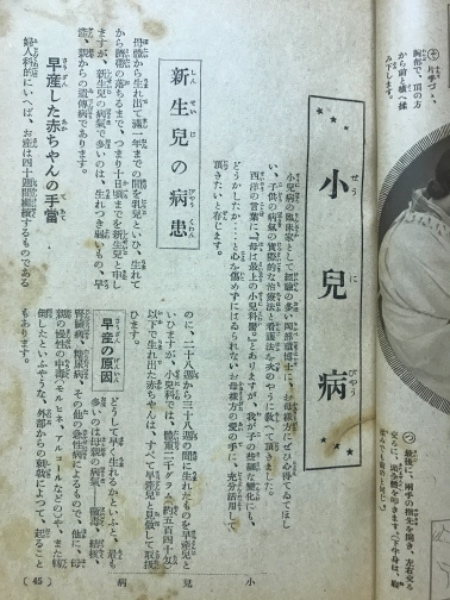 そ 片手づゝ、
胸部で、乳の方
から前と横へ揉
み下します。
つ 最後に、兩手の指先を開き、左右交る
小兒病
せうにびやう
小兒病の臨床家として經驗の多い岡部
博士に、お母樣方にぜひ心得てゐてほし
い、子供の病氣の實際的な治療法と看護法を次のやうに敎へて頂きました。
西洋の言葉に、『母は最上の小兒科醫。』とありますが、我が子の些細な變化にも、
どうかしたか…と心を傷めずにはゐられないお母樣方の愛の手に、充分活用して
頂きたいと存じます。
新生兒の病患
しんせいじ びやうくわん
母體から生れ出て滿一年までの間を乳兒といひ、生れて
から臍帶の落ちるまで、つまり十日頃までを新生兒と申し
ますが、新生兒の病氣で多いのは、生れつき弱いもの、早
産、親からの遺傳病であります。
早産した赤ちやんの手當
さうざん あか てあて
婦人科的にいへば、お産は四十週間繼續するものである
のに、二十八週から三十八週の間に生れたものを早産兒と
いひますが、小兒科では、體重二千グラム(約五百四十匁)
以下で生れ出た赤ちやんは、すべて早産兒と見做して取扱
ひます。
早産の原因
さうざん げんいん
どうして早く生れるかといふと、最も
多いのは母親の病氣──黴毒、結核、
腎臟病、糖尿病、その他の急性病によるもので、他に、母
親の慢性の中毒(モルヒネ、アルコールなど)や、また轉
倒したといふやうな、外部からの動機によつて、起ること
もあります。
小兒病
(45)